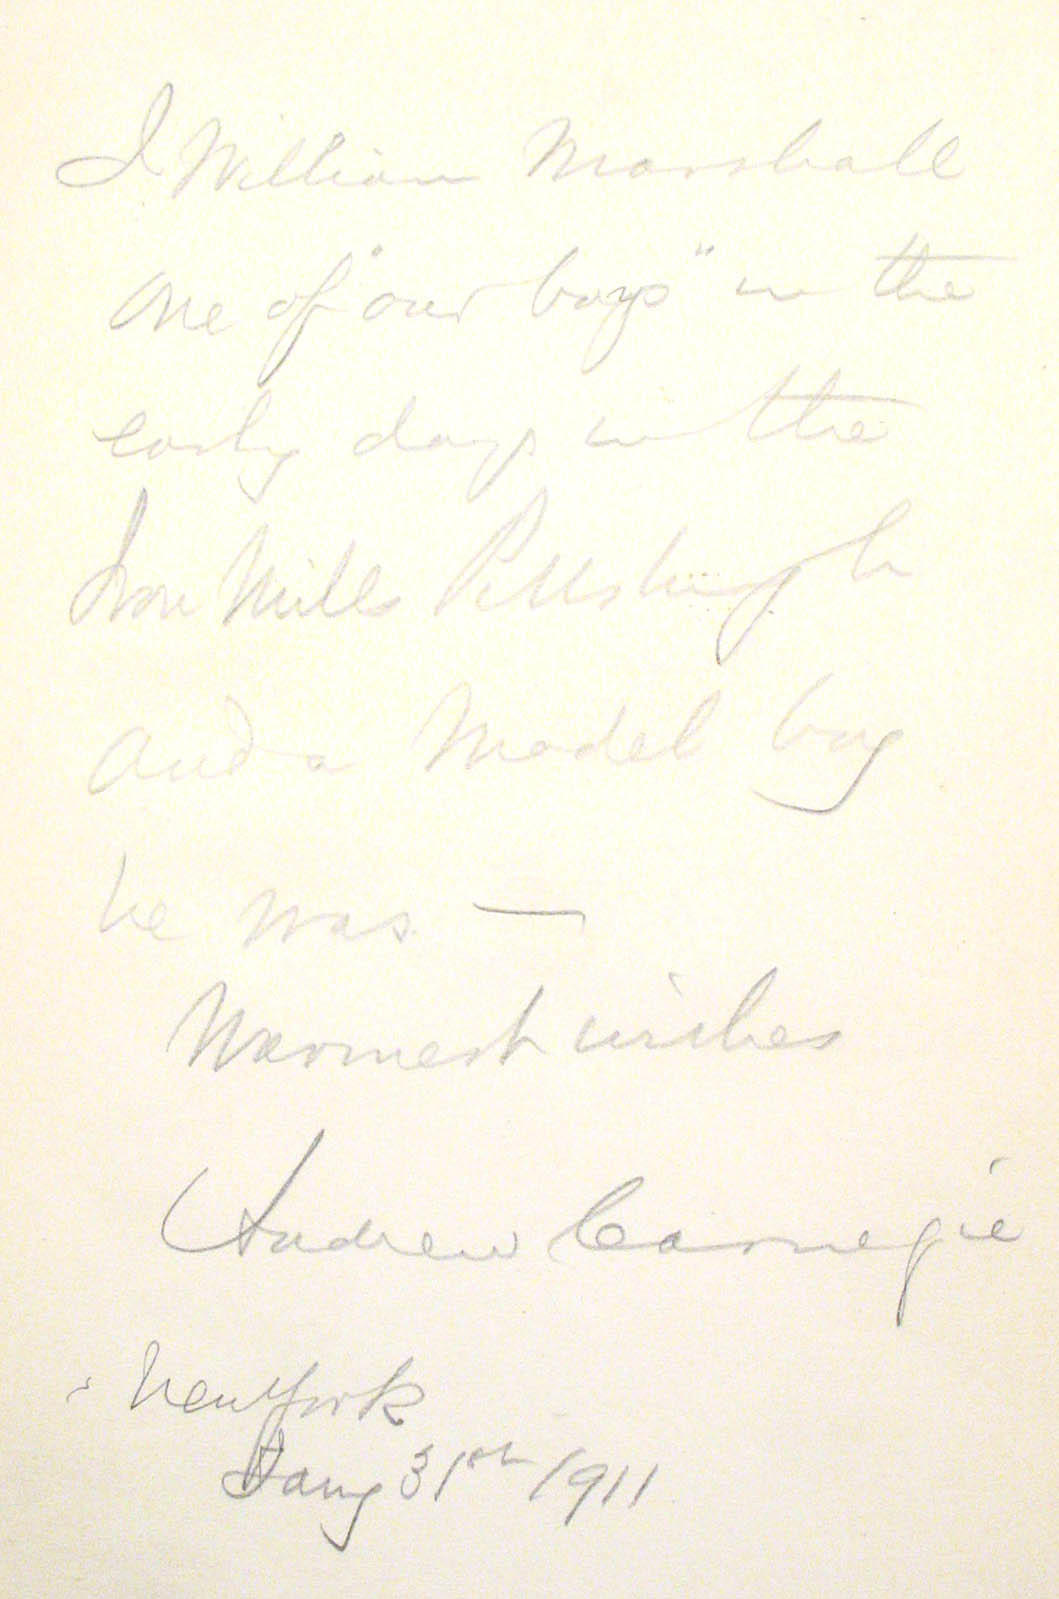 J William Marshall
One of "our boys" in the
early days in the
Iron Mills Pittsburgh
and a Model boy
he was —
Warmest wishes
Andrew Carnegie
New York
Jany 31st 1911